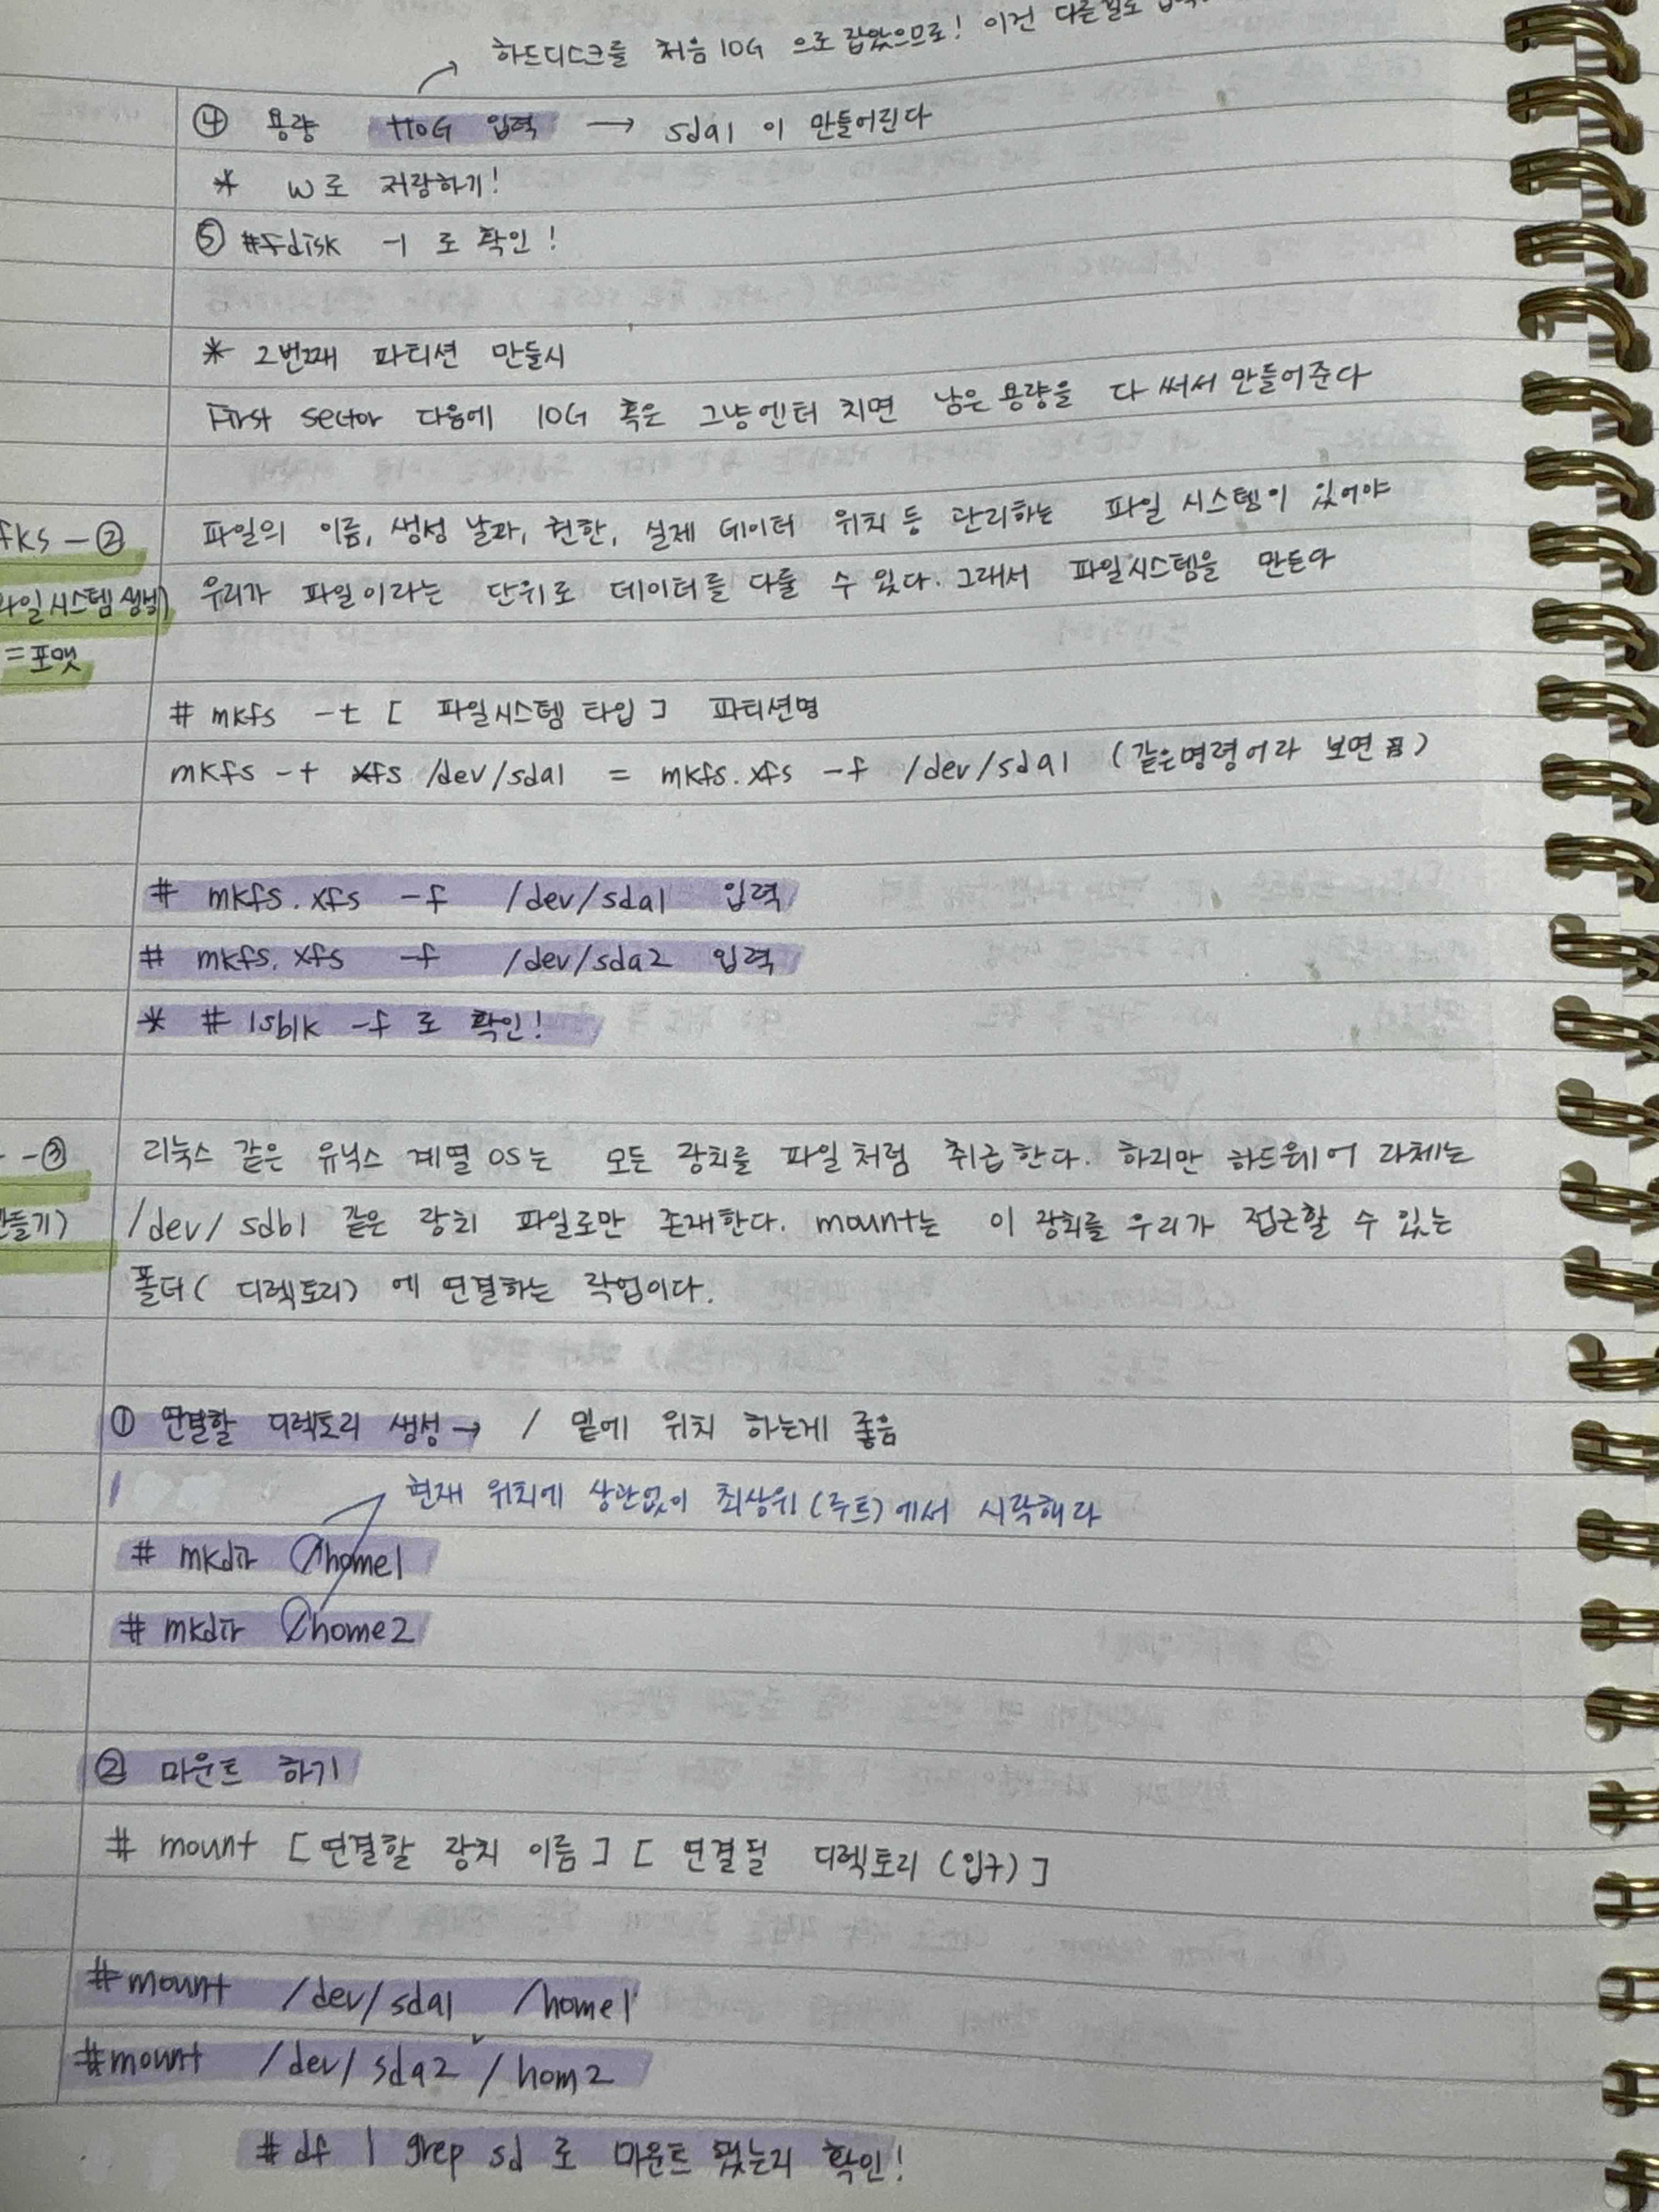 하드디스크를 처음 10G 으로 잡았으므로! 이건 다른걸로
④ 용량 +10G 입력 → sda1 이 만들어진다
* w로 저장하기!
⑤ #fdisk -l 로 확인!
* 2번째 파티션 만들시
First sector 다음에 10G 혹은 그냥엔터 치면 남은 용량을 다 써서 만들어준다
fks - ② 파일의 이름, 생성 날짜, 권한, 실제 데이터 위치 등 관리하는 파일 시스템이 있어야
파일시스템 생성) 우리가 파일이라는 단위로 데이터를 다룰 수 있다. 그래서 파일시스템을 만든다
= 포맷
# mkfs -t [ 파일시스템 타입 ] 파티션명
mkfs -t xfs /dev/sda1 = mkfs.xfs -f /dev/sda1 (같은명령어라 보면 됨)
# mkfs.xfs -f /dev/sda1 입력
# mkfs.xfs -f /dev/sda2 입력
* # lsblk -f 로 확인!
- ③ 리눅스 같은 유닉스 계열 OS는 모든 장치를 파일처럼 취급한다. 하지만 하드웨어 자체는
만들기) /dev/sdb1 같은 장치 파일로만 존재한다. mount는 이 장치를 우리가 접근할 수 있는
폴더( 디렉토리) 에 연결하는 작업이다.
① 연결할 디렉토리 생성 → / 밑에 위치 하는게 좋음
현재 위치에 상관없이 최상위(루트)에서 시작해라
# mkdir /home1
# mkdir /home2
② 마운트 하기
# mount [연결할 장치 이름] [ 연결될 디렉토리 (입구) ]
#mount /dev/sda1 /home1
#mount /dev/sda2 /hom2
#df | grep sd 로 마운트 됐는지 확인!